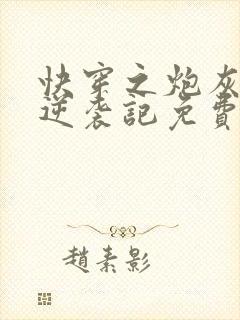 快穿之炮灰
逆袭記免費
趙素影